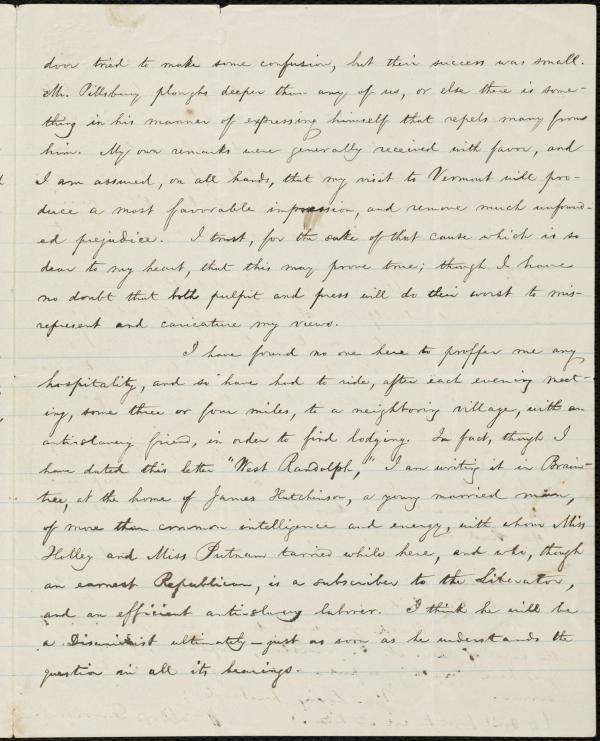 door tried to make some confusion, but their success was small.
Mr. Pillsbury ploughs deeper than any of us, or else there is some-
thing in his manner of expressing himself that repels many from
him. My own remarks were generally received with favor, and
I am assured, on all hands, that my visit to Vermont will pro-
duce a most favorable impression, and remove much unfound-
ed prejudice. I trust, for the sake of that cause which is so
dear to my heart, that this may prove true; though I have
no doubt that both pulpit and press will do their worst to mis-
represent and caricature my views.
I have found no one here to proffer me any
hospitality, and so have had to ride, after each evening meet-
ing, some three or four miles, to a neighboring village, with an
anti-slavery friend, in order to find lodging. In fact, though I
have dated this letter "West Randolph," I am writing it in Brain-
tree, at the home of James Hutchinson, a young married man,
of more than common intelligence and energy, with whom Miss
Holley and Miss Putnam tarried while here, and who, though
an earnest Republican, is a subscriber to the Liberator,
and an efficient anti-slavery laborer. I think he will be
a Disunionist ultimately—just as soon as he understands the
question in all its bearings.